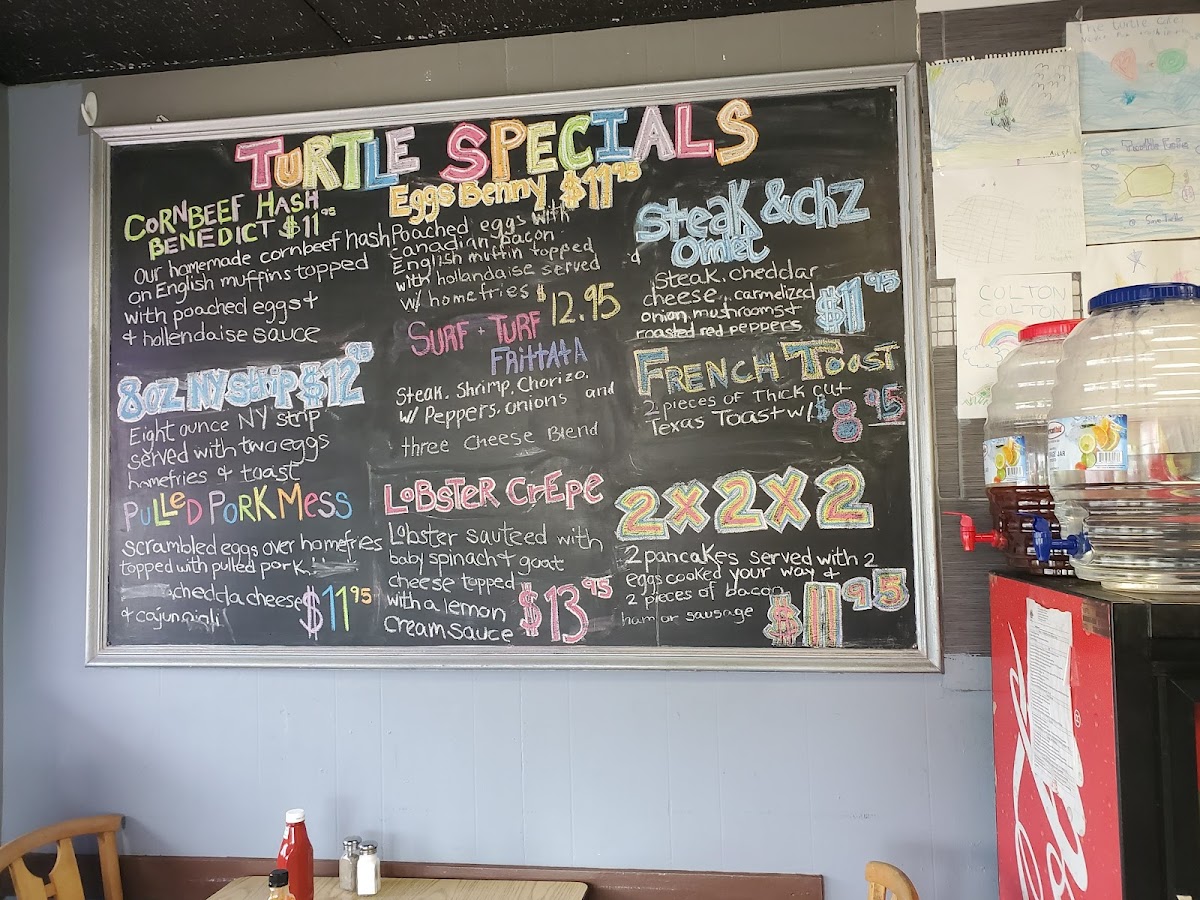 TURTLE SPECIALS
CORNBEEF HASH
BENEDICT $11 95
Our homemade cornbeef hash
on English muffins topped
with poached eggs +
+ hollendaise sauce
8oz NY strip $12 95
Eight ounce NY strip
served with two eggs
homefries + toast
PULLED PORK MESS
scrambled eggs over homefries
topped with pulled pork.
chedda cheese
+ cajun aioli
$11 95
Eggs Benny $11 95
Poached eggs with
canadian bacon
English muffin topped
with hollandaise served
w/ homefries
$12.95
SURF + TURF
FRittAtA
Steak. Shrimp. Chorizo.
w/ Peppers. onions and
three cheese Blend
LOBSTER CrEpe
Lobster sauteed with
baby spinach + goat
cheese topped
with a lemon
cream sauce
$13 95
Steak & chz
Omlet
steak. cheddar
cheese. carmelized
onion, mushrooms +
roasted red peppers
$11 95
FRENCH TOAST
2 pieces of Thick cut
Texas Toast w/
$8 95
2x2x2
2 pancakes served with 2
eggs cooked your way +
2 pieces of bacon
ham or sausage
$11 95
The turtle
COLTON
COLTON